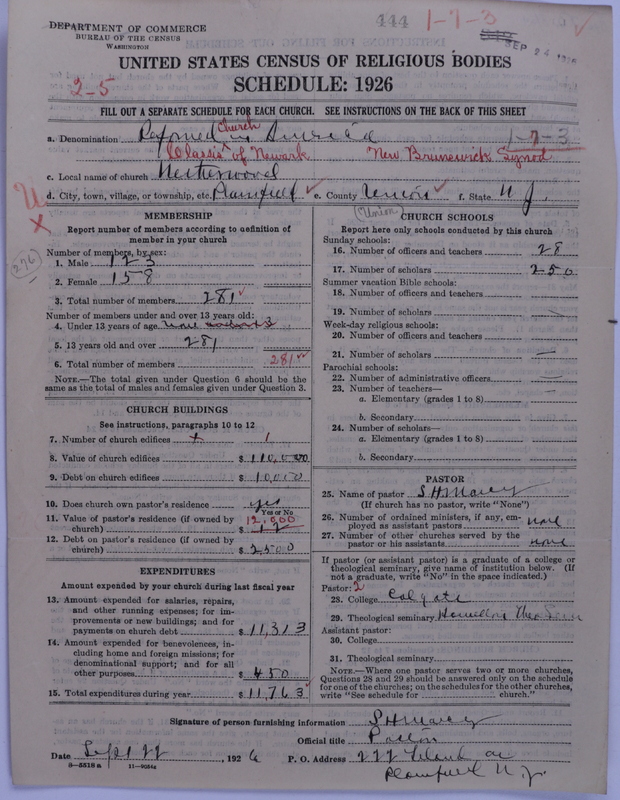 DEPARTMENT OF COMMERCE
BUREAU OF THE CENSUS
WASHINGTON
444 1-7-3
SEP 24 1926
UNITED STATES CENSUS OF RELIGIOUS BODIES
SCHEDULE: 1926
2-5
FILL OUT A SEPARATE SCHEDULE FOR EACH CHURCH. SEE INSTRUCTIONS ON THE BACK OF THIS SHEET
a. Denomination Reformed Church in America 1-7-3
Classis of Newark New Brunswick Synod
c. Local name of church Netherwood
d. City, town, village, or township, etc. Plainfield e. County Union f. State N J.
(Union)
276
MEMBERSHIP
Report number of members according to definition of
member in your church
Number of members, by sex:
1. Male 123
2. Female 158
3. Total number of members 281
Number of members under and over 13 years old:
4. Under 13 years of age
5. 13 years old and over 281
6. Total number of members 281
NOTE.—The total given under Question 6 should be the
same as the total of males and females given under Question 3.
CHURCH BUILDINGS
See instructions, paragraphs 10 to 12
7. Number of church edifices x 1
8. Value of church edifices $ 110,000
9. Debt on church edifices $ 10,000
10. Does church own pastor's residence yes
Yes or No
11. Value of pastor's residence (if owned by 12,000
church) $ 12
12. Debt on pastor's residence (if owned by
church) $ 2500
EXPENDITURES
Amount expended by your church during last fiscal year
13. Amount expended for salaries, repairs,
and other running expenses; for im-
provements or new buildings; and for
payments on church debt $ 11,313
14. Amount expended for benevolences, in-
cluding home and foreign missions; for
denominational support; and for all
other purposes $ 450
15. Total expenditures during year $ 11,763
CHURCH SCHOOLS
Report here only schools conducted by this church
Sunday schools:
16. Number of officers and teachers 28
17. Number of scholars 250
Summer vacation Bible schools:
18. Number of officers and teachers
19. Number of scholars
Week-day religious schools:
20. Number of officers and teachers
21. Number of scholars
Parochial schools:
22. Number of administrative officers
23. Number of teachers—
a. Elementary (grades 1 to 8)
b. Secondary
24. Number of scholars—
a. Elementary (grades 1 to 8)
b. Secondary
PASTOR
25. Name of pastor S H Marcy
(If church has no pastor, write "None")
26. Number of ordained ministers, if any, em-
ployed as assistant pastors none
27. Number of other churches served by the
pastor or his assistants none
If pastor (or assistant pastor) is a graduate of a college or
theological seminary, give name of institution below. (If
not a graduate, write "No" in the space indicated.)
Pastor: 2
28. College Colgate
29. Theological seminary Hamilton Theo Sem
Assistant pastor:
30. College
31. Theological seminary
NOTE.—Where one pastor serves two or more churches,
Questions 28 and 29 should be answered only on the schedule
for one of the churches; on the schedules for the other churches,
write "See schedule for church."
Signature of person furnishing information S H Marcy
Official title Pastor
Date Sept 22 1926 P. O. Address 277 Leland av
Plainfield N. J.
8-5518 a 11-9054